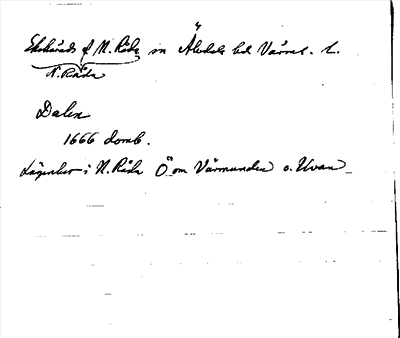 Ekshärads f N. Råda sn Älvdals hd Värml. l.
N. Råda
Dalen
1666 domb.
Lägenhet i N. Råda Ö om Värmunden o. Uvan